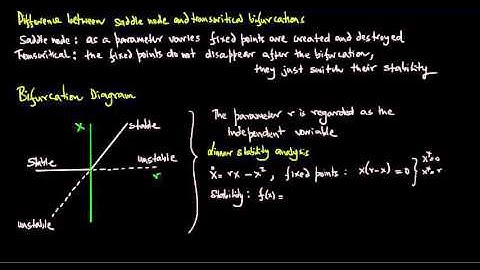 Difference between saddle node and transcritical bifurcations
Saddle node : as a parameter varies fixed points are created and destroyed
Transcritical : the fixed points do not disappear after the bifurcation,
they just switch their stability
Bifurcation Diagram
x
stable
Stable
unstable
r
unstable
The parameter r is regarded as the
independent variable
linear stability analysis
ẋ = rx - x², fixed points : x(r-x) = 0 } x*=0
x*=r
Stability : f(x) =